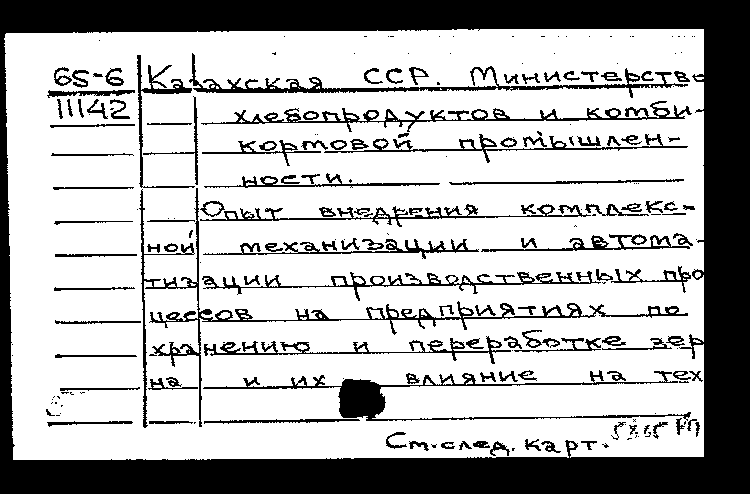 65-6 Казахская ССР. Министерство
11142 хлебопродуктов и комби-
кормовой промышлен-
ности.
Опыт внедрения комплекс-
ной механизации и автома-
тизации производственных про
цессов на предприятиях по
хранению и переработке зер
на и их влияние на тех
См. след. карт.